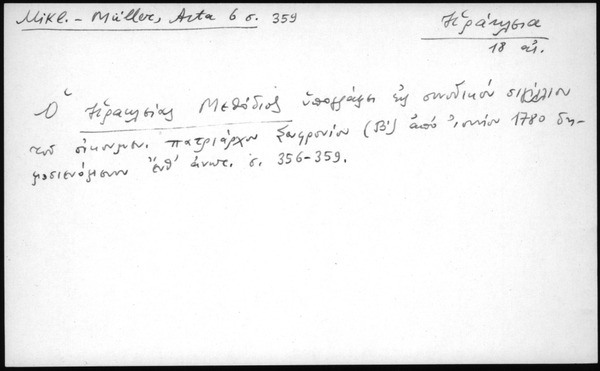 Mikl. - Müller, Acta 6 σ. 359
Ἡράκλεια
18 αἰ.
Ὁ Ἡρακλείας Μεθόδιος ὑπογράφει εἰς συνοδικόν σιγίλλιον
τοῦ οἰκουμεν. πατριάρχου Σωφρονίου (Β') ἀπό Ἰουνίου 1780 δη-
μοσιευόμενον ἔνθ' ἀνωτ. σ. 356-359.